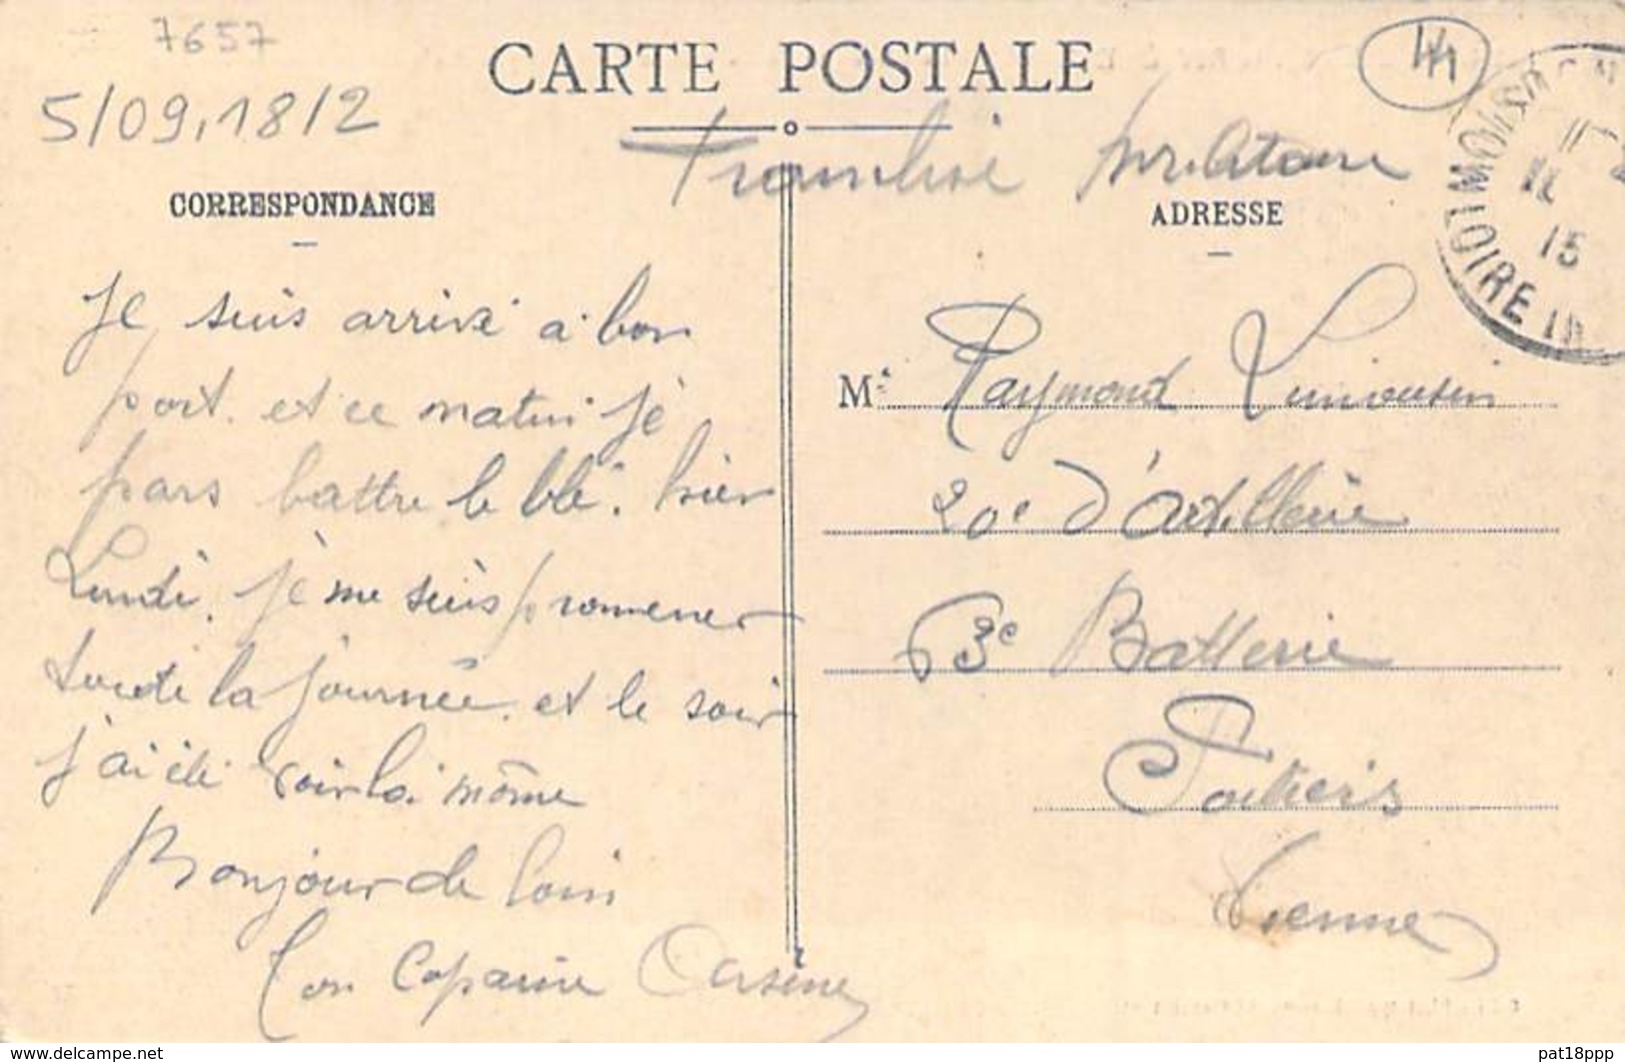 7657
5/09,1812
CARTE POSTALE
44
Franchise militaire
CORRESPONDANCE
ADRESSE
LOIRE INF
15
Je suis arrivé à bon
port. et ce matin je
pars battre le blé. hier
Lundi, je me suis promener
toute la journée. et le soir
j'ai été voir la môme
Bonjour de loin
Ton Copain Arsène
M. Raymond Limousin
20e d'Artillerie
63e Batterie
Poitiers
Vienne
delcampe.net
pat18ppp